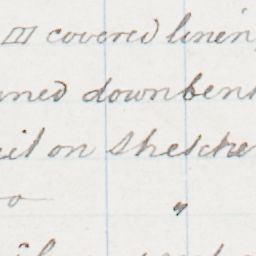 III covered linen
ned downbent
cil on Sketche
"